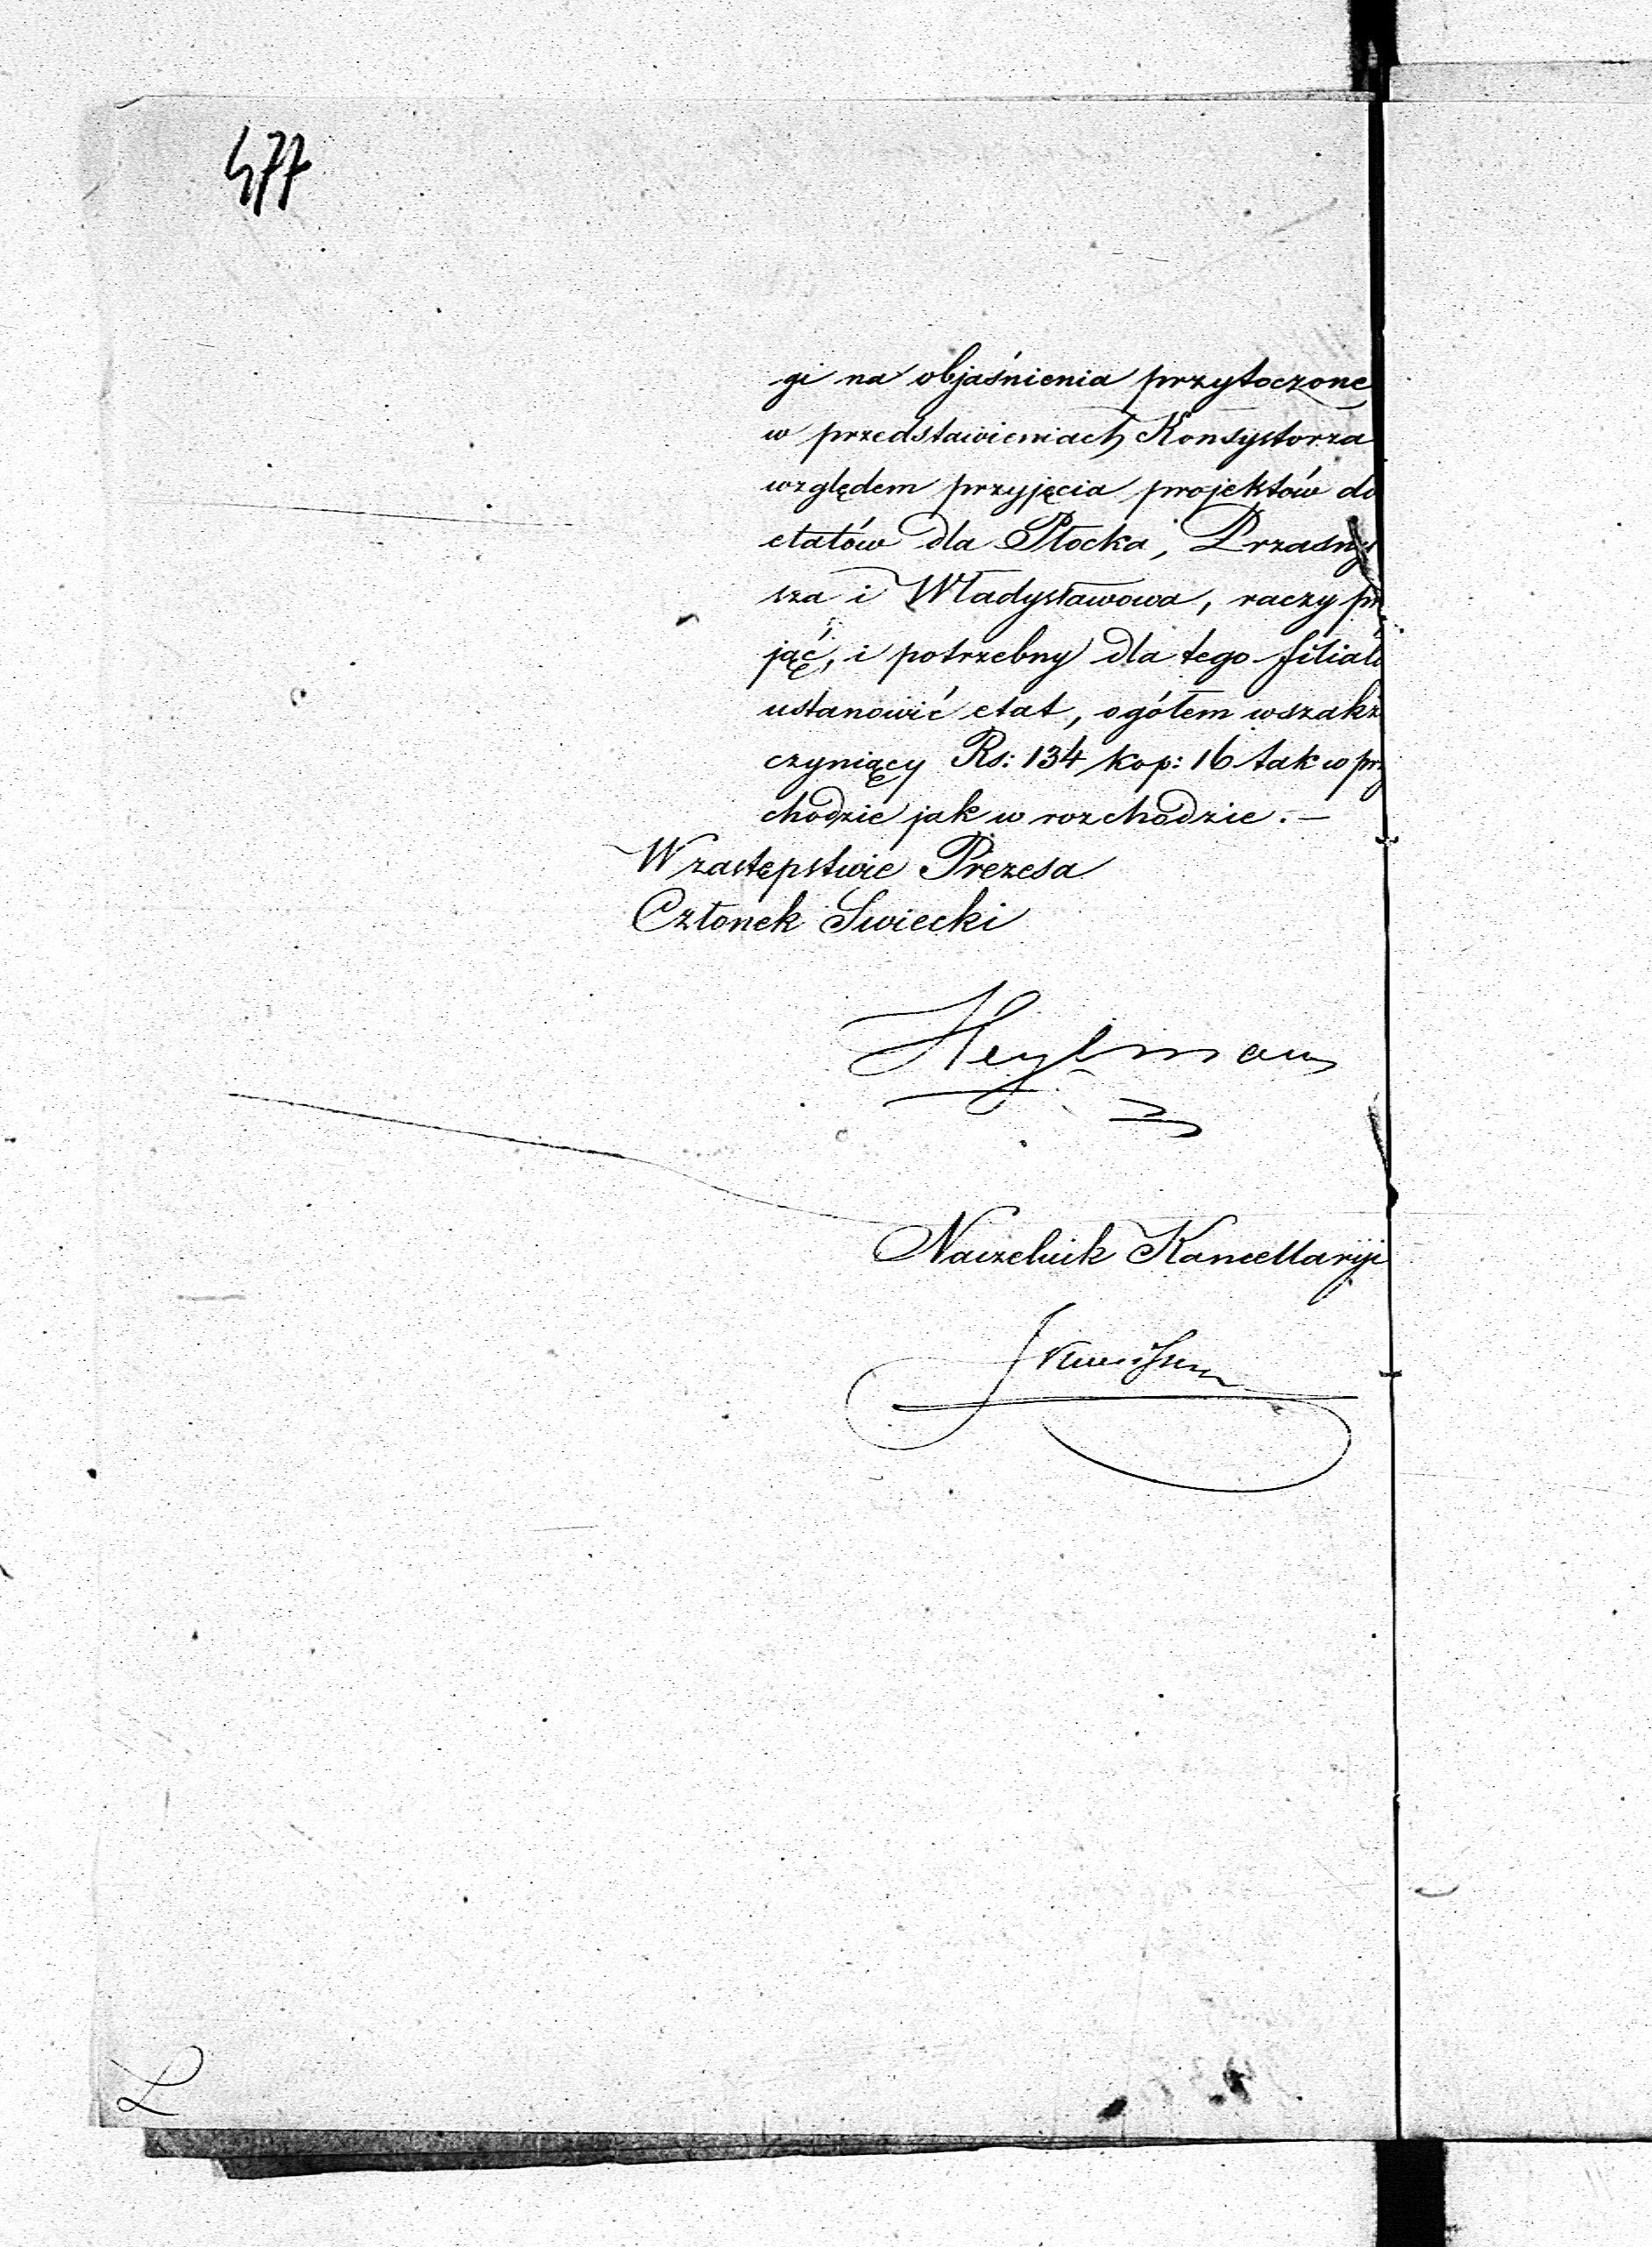 477
gi na objaśnienia przytoczone
w przedstawieniach Konsystorza
względem przyjęcia projektów do
etatów dla Płocka, Przasny
sza i Władysławowa, raczy pr
jąć, i potrzebny dla tego filiału
ustanowić etat, ogółem wszakż
czyniący Rs: 134 kop: 16 tak w prz
chodzie jak w rozchodzie. –
W zastępstwie Prezesa
Członek Swiecki
Heylman
Naczelnik Kancellaryi
L